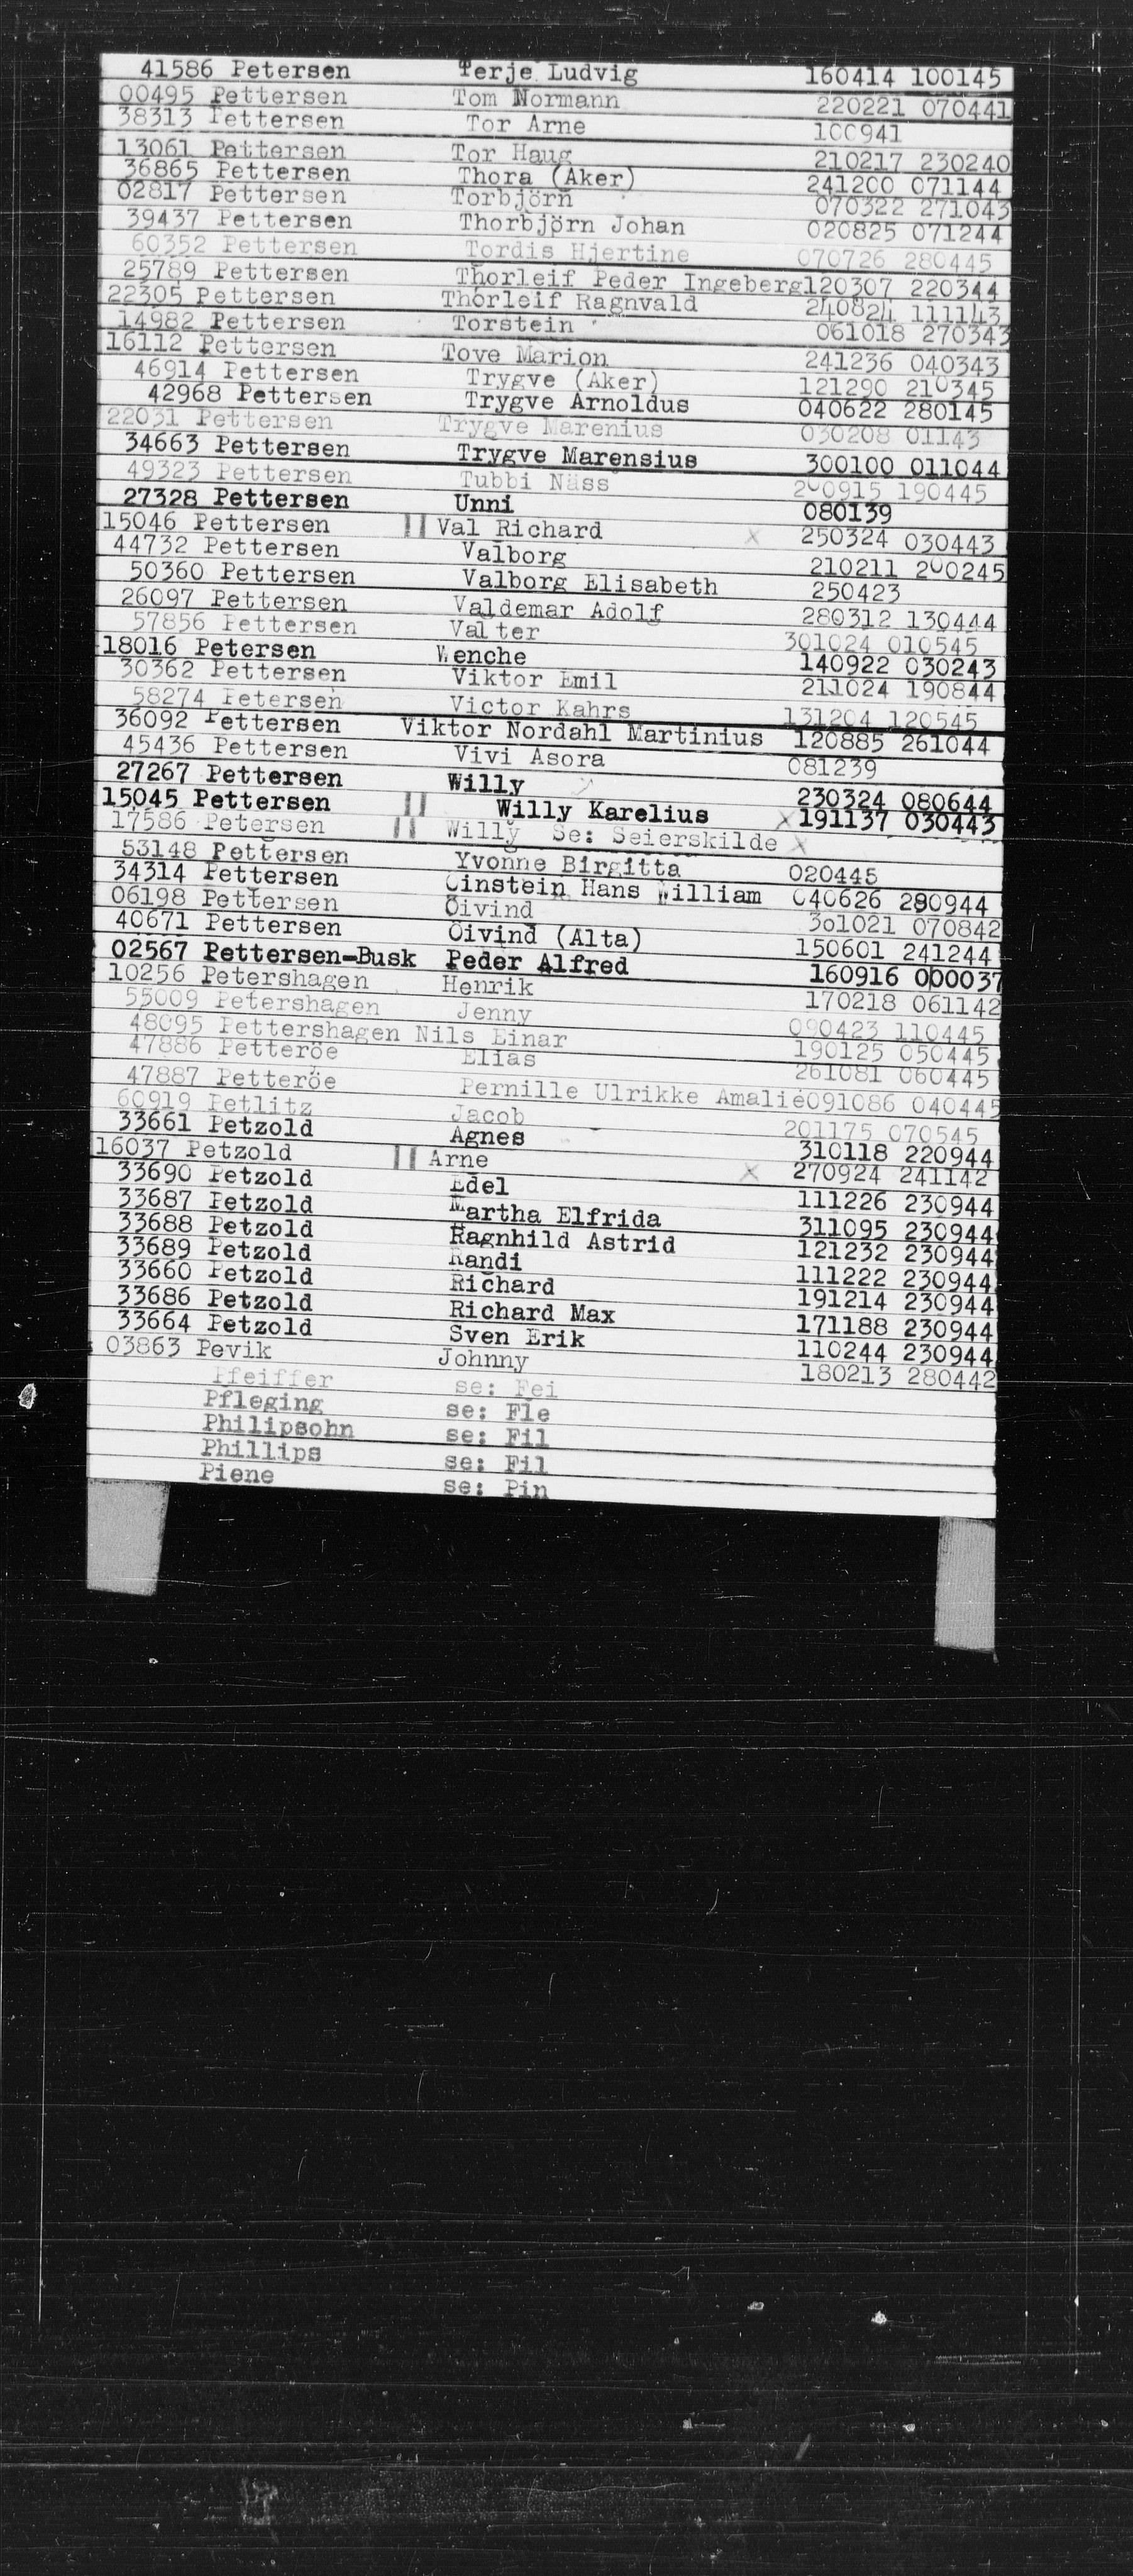 41586 Petersen Terje Ludvig 160414 100145
00495 Pettersen Tom Normann 220221 070441
38313 Pettersen Tor Arne 100941
13061 Pettersen Tor Haug 210217 230240
36865 Pettersen Thora (Aker) 241200 071144
02817 Pettersen Torbjörn 070322 271043
39437 Pettersen Thorbjörn Johan 020825 071244
60352 Pettersen Tordis Hjertine 070726 280445
25789 Pettersen Thorleif Peder Ingeberg120307 220344
22305 Pettersen Thorleif Ragnvald 240824 111143
14982 Pettersen Torstein 061018 270343
16112 Pettersen Tove Marion 241236 040343
46914 Pettersen Trygve (Aker) 121290 210345
42968 Pettersen Trygve Arnoldus 040622 280145
22031 Pettersen Trygve Marenius 030208 01143
34663 Pettersen Trygve Marensius 300100 011044
49323 Pettersen Tubbi Näss 200915 190445
27328 Pettersen Unni 080139
15046 Pettersen || Val Richard x 250324 030443
44732 Pettersen Valborg 210211 200245
50360 Pettersen Valborg Elisabeth 250423
26097 Pettersen Valdemar Adolf 280312 130444
57856 Pettersen Valter 301024 010545
18016 Petersen Wenche 140922 030243
30362 Pettersen Viktor Emil 211024 190844
58274 Petersen Victor Kahrs 131204 120545
36092 Pettersen Viktor Nordahl Martinius 120885 261044
45436 Pettersen Vivi Asora 081239
27267 Pettersen Willy 230324 080644
15045 Pettersen || Willy Karelius x 191137 030443
17586 Petersen || Willy Se: Seierskilde x
53148 Pettersen Yvonne Birgitta 020445
34314 Pettersen Öinstein Hans William 040626 280944
06198 Pettersen Öivind 301021 070842
40671 Pettersen Öivind (Alta) 150601 241244
02567 Pettersen-Busk Peder Alfred 160916 000037
10256 Petershagen Henrik 170218 061142
55009 Petershagen Jenny 090423 110445
48095 Pettershagen Nils Einar 190125 050445
47886 Petteröe Elias 261081 060445
47887 Petteröe Pernille Ulrikke Amalie091086 040445
60919 Petlitz Jacob 201175 070545
33661 Petzold Agnes 310118 220944
16037 Petzold || Arne x 270924 241142
33690 Petzold Edel 111226 230944
33687 Petzold Martha Elfrida 311095 230944
33688 Petzold Ragnhild Astrid 121232 230944
33689 Petzold Randi 111222 230944
33660 Petzold Richard 191214 230944
33686 Petzold Richard Max 171188 230944
33664 Petzold Sven Erik 110244 230944
03863 Pevik Johnny 180213 280442
Pfeiffer se: Fei
Pfleging se: Fle
Philipsohn se: Fil
Phillips se: Fil
Piene se: Pin